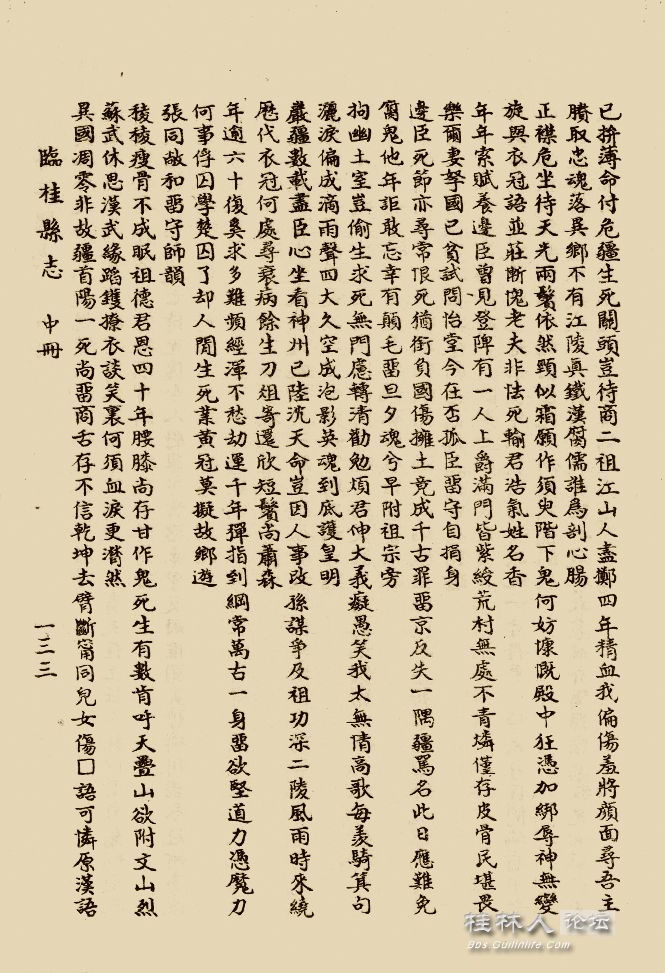 已拚薄命付危疆生死關頭豈待商二祖江山人盡擲四年精血我偏傷羞將顏面尋吾主
賸取忠魂落異鄉不有江陵真鐵漢腐儒誰為剖心腸
正襟危坐待天光兩鬢依然頸似霜願作須臾階下鬼何妨慷慨殿中狂憑加綁辱神無變
旋與衣冠語並莊斷愧老夫非怯死輸君浩氣姓名香
年年索賦養邊臣曾見登陴有一人上爵滿門皆紫綬荒村無處不青燐僅存皮骨民堪畏
樂爾妻孥國已貧試問怡堂今在否孤臣畱守自捐身
邊臣死節亦尋常恨死猶銜負國傷擁土竟成千古罪畱京反失一隅疆罵名此日應難免
厲鬼他年詎敢忘幸有顛毛畱旦夕魂兮早附祖宗旁
拘幽土室豈偷生求死無門慮轉清勸勉煩君伸大義癡愚笑我太無情高歌每羨騎箕句
灑淚偏成滴雨聲四大久空成泡影英魂到底護皇明
嚴疆數載盡臣心坐看神州已陸沈天命豈因人事改孫謀爭及祖功深二陵風雨時來繞
歷代衣冠何處尋衰病餘生刀俎寄還欣短鬢尚蕭森
年逾六十復奚求多難頻經渾不愁劫運千年彈指到綱常萬古一身畱欲堅道力憑魔力
何事俘囚學楚囚了却人間生死業黃冠莫擬故鄉遊
張同敞和畱守師韻
稜稜瘦骨不成眠祖德君恩四十年腰膝尚存甘作鬼死生有數肯呼天疊山欲附文山烈
蘇武休思漢武緣蹈鑊撩衣談笑裏何須血淚更潸然
異國凋零非故疆首陽一死尚畱商舌存不信乾坤去臂斷甯同兒女傷□語可憐原漢語
臨桂縣志 中冊
一三三
桂林人论坛
Bbs.Guilinlife.Com